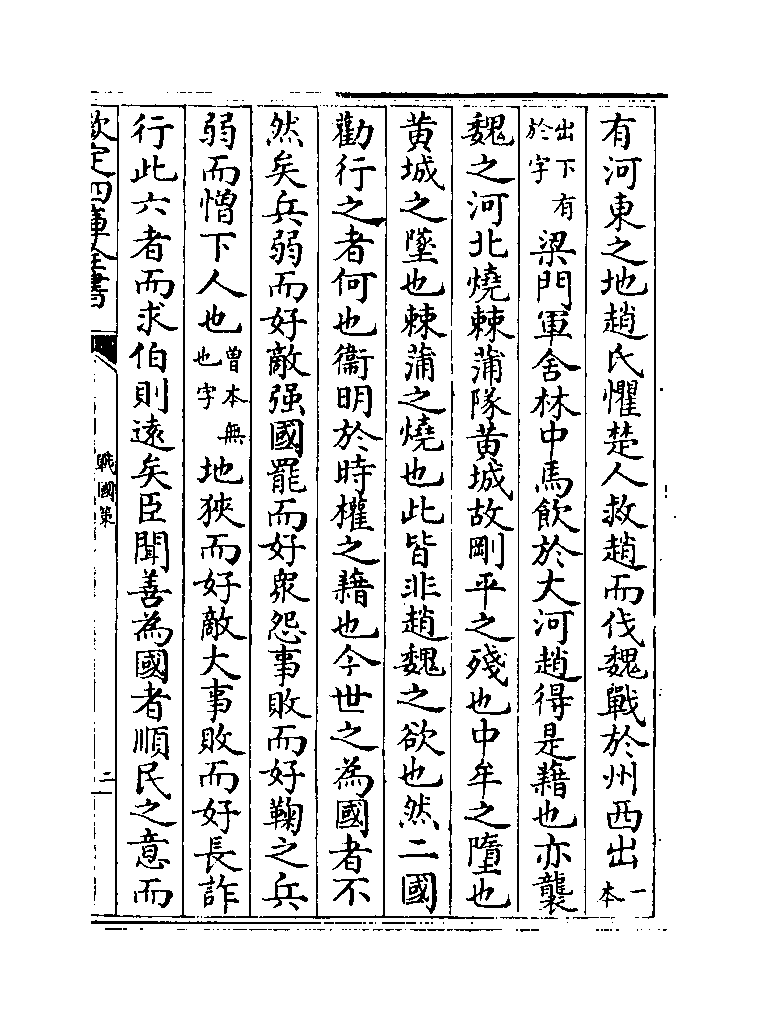 有河東之地趙氏懼楚人救趙而伐魏戰於州西出一本
出下有於字梁門軍舍林中馬飲於大河趙得是藉也亦襲
魏之河北燒棘蒲隊黄城故剛平之殘也中牟之墮也
黄城之墜也棘蒲之燒也此皆非趙魏之欲也然二國
勸行之者何也衞明於時權之藉也今世之為國者不
然矣兵弱而好敵强國罷而好衆怨事敗而好鞠之兵
弱而憎下人也曽本無也字地狹而好敵大事敗而好長詐
行此六者而求伯則逺矣臣聞善為國者順民之意而
欽定四庫全書
戰國策
二